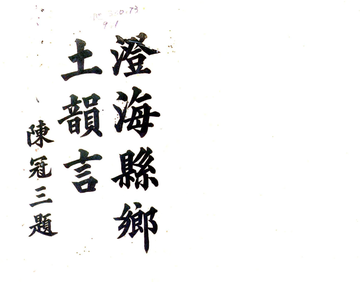 澄海縣鄉
土韻言
陳冠三題